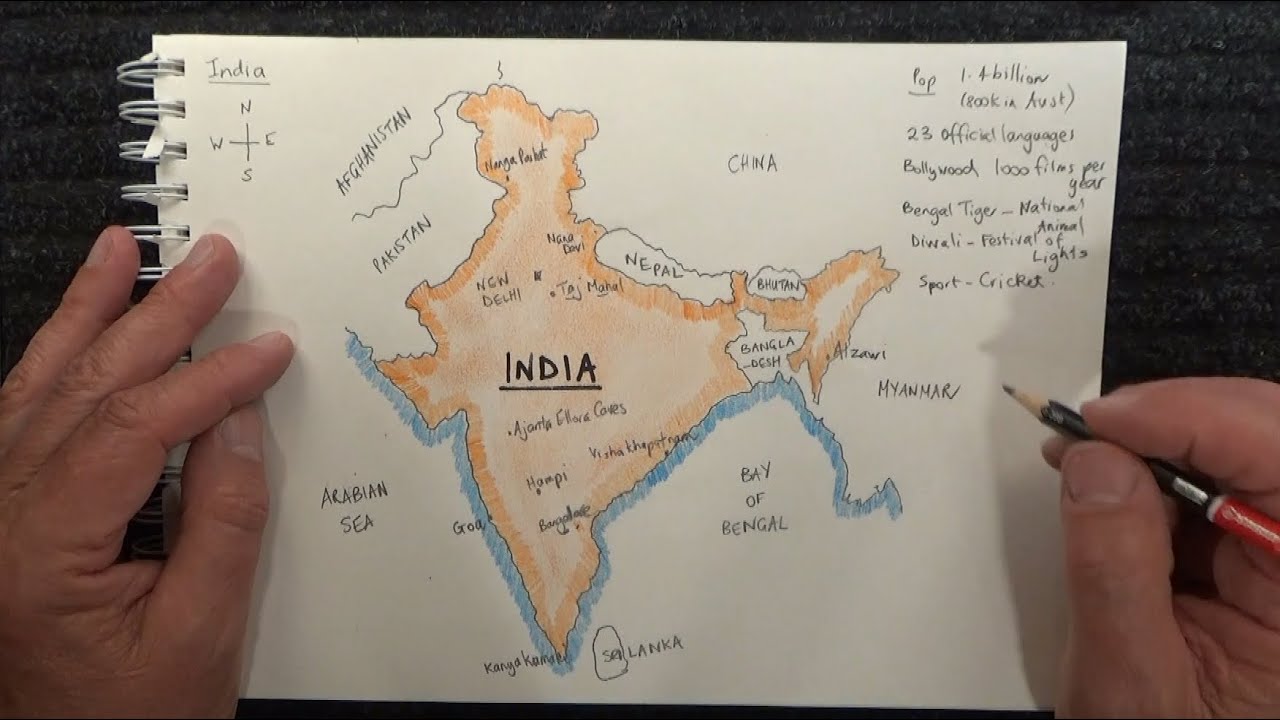 India
N
W E
S
AFGHANISTAN
PAKISTAN
CHINA
Nanga Parbat
Nana
Davi
NEW
DELHI
Taj Mahal
NEPAL
BHUTAN
BANGLA
-DESH
Aizawi
MYANMAR
INDIA
Ajanta Ellora Caves
Vishakhapatnam
Hampi
Bangalore
Goa
ARABIAN
SEA
BAY
OF
BENGAL
Kanyakumari
SRI LANKA
Pop 1.4billion
(800k in Aust)
23 Official languages
Bollywood 1000 films per
year
Bengal Tiger - National
Animal
Diwali - Festival of
Lights
Sport - Cricket.